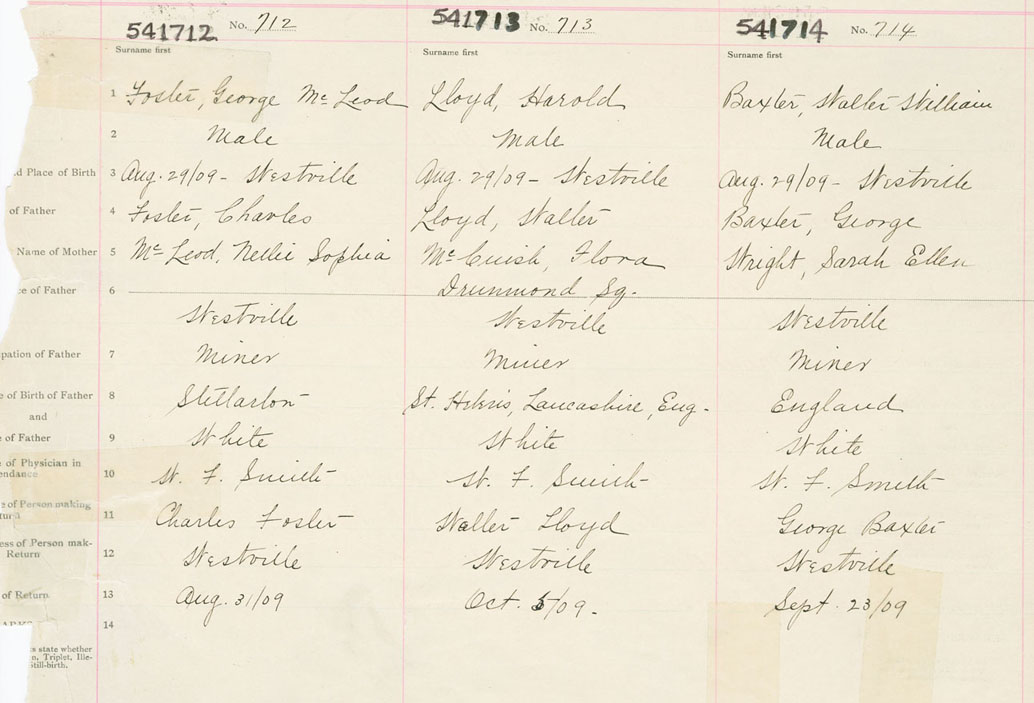 541712 No. 712 541713 No. 713 541714 No. 714
Surname first Surname first Surname first
1 Foster, George Mc Leod Lloyd, Harold Baxter, Walter William
2 Male Male Male
d Place of Birth 3 Aug. 29/09 - Westville Aug. 29/09 - Westville Aug. 29/09 - Westville
of Father 4 Foster, Charles Lloyd, Walter Baxter, George
Name of Mother 5 Mc Leod, Nellie Sophia Mc Cuish, Flora Wright, Sarah Ellen
ce of Father 6 Drummond Sq.
Westville Westville Westville
pation of Father 7 Miner Miner Miner
e of Birth of Father 8 Stellarton St. Helens, Lancashire, Eng. England
and
e of Father 9 White White White
e of Physician in
endance 10 W. F. Smith W. F. Smith W. F. Smith
e of Person making
turn 11 Charles Foster Walter Lloyd George Baxter
ess of Person mak-
Return 12 Westville Westville Westville
of Return 13 Aug. 31/09 Oct. 5/09. Sept. 23/09
14
s state whether
n, Triplet, Ille-
Still-birth.